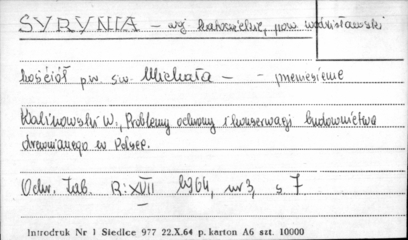 SYRYNIA – woj katowickie, pow. wodzisławski
kościół p.w. św. Michała – - przeniesienie
Kalinowski W., Problemy ochrony i konserwacji budownictwa
drewnianego w Polsce.
Ochr. Zab. R: XVII 1964, nr 3, s 7
Introdruk Nr 1 Siedlce 977 22.X.64 p. karton A6 szt. 10000